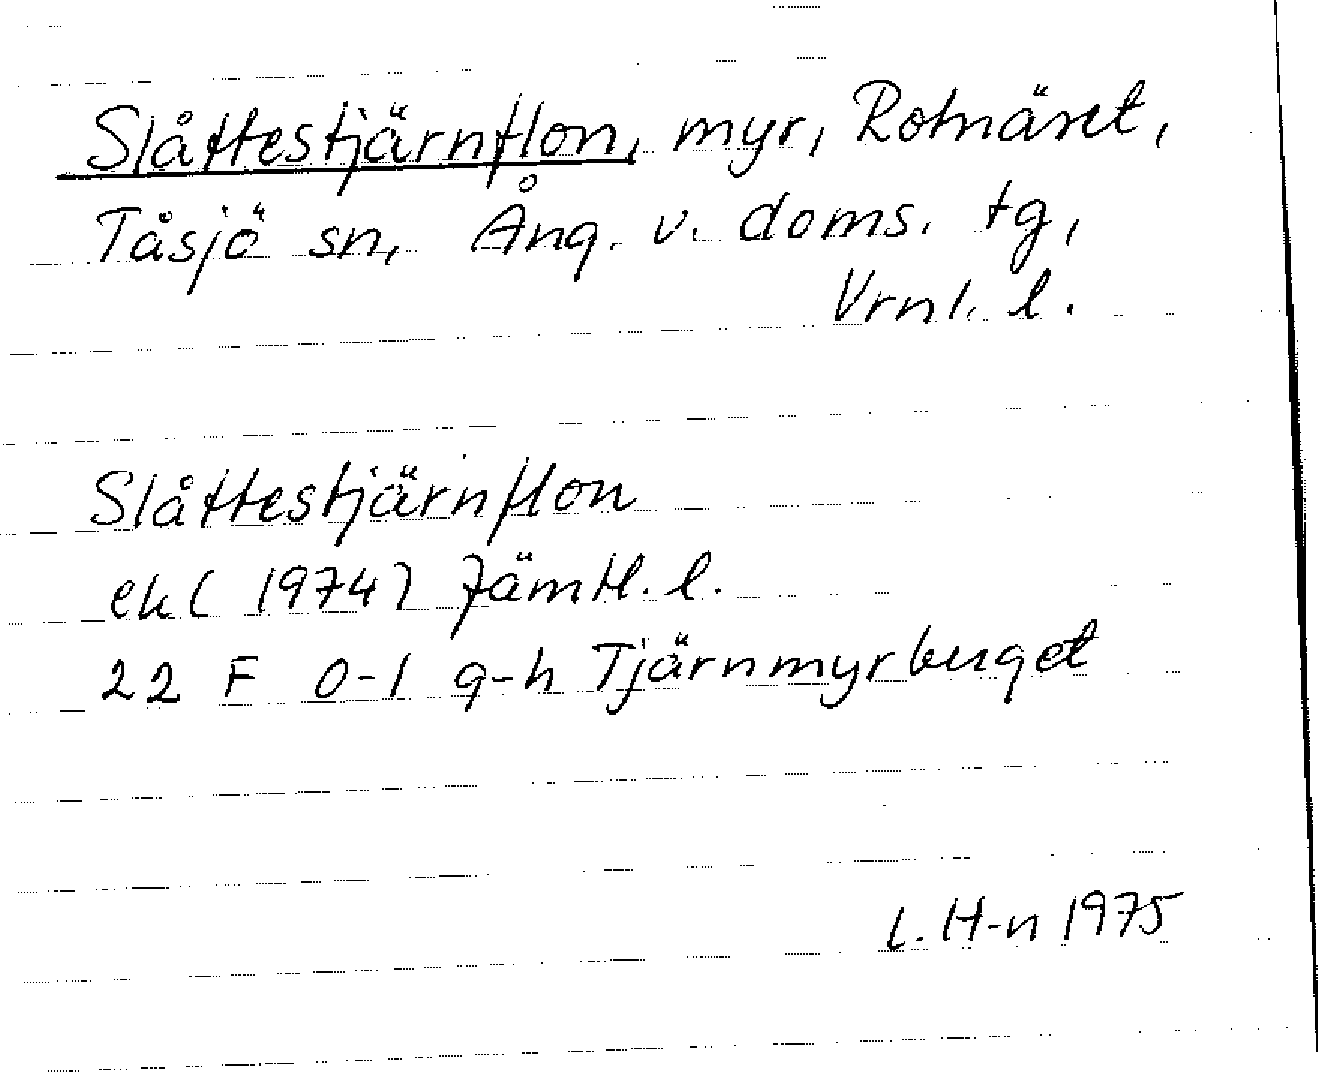 Slåttestjärnflon, myr, Rotnäset,
Tåsjö sn, Ång. v. doms. tg,
Vrnl. l.
Slåttestjärnflon
ek (1974) Jämtl. l.
22 F 0-1 g-h Tjärnmyrberget
L. H-n 1975